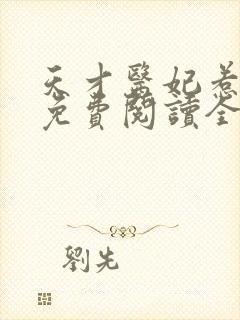 天才醫妃惹
免費閱讀全
劉先